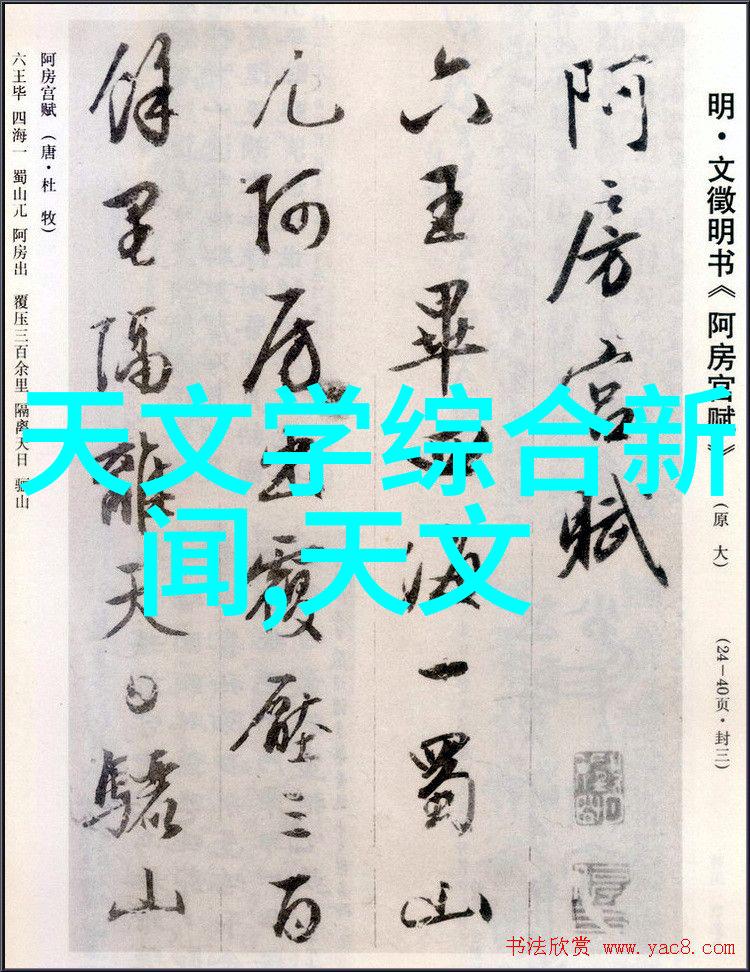 明·文徵明书《阿房宫赋》（原大） （24—40页·封三）
阿房宫赋
六王畢四海一蜀山
兀阿房出覆壓三百
餘里隔離天日驪山
阿房宫赋（唐·杜 牧）
六王毕 四海一 蜀山兀 阿房出 覆压三百余里 隔离天日 骊山
天文学综合新
闻,天文
书法欣赏 www.yac8.com